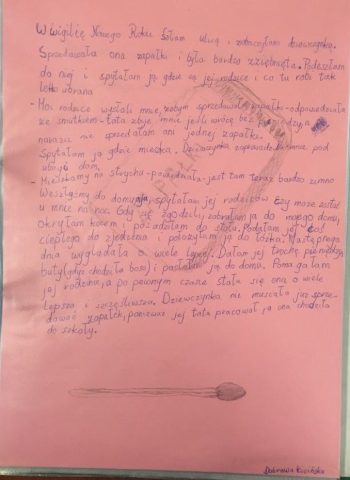 W wigilię Nowego Roku szłam ulicą i zobaczyłam dziewczynkę.
Sprzedawała ona zapałki i była bardzo zziębnięta. Podeszłam
do niej i spytałam ją gdzie są jej rodzice i co tu robi tak
lekko ubrana
- Moi rodzice wysłali mnie, żebym sprzedawała zapałki - odpowiedziała
ze smutkiem - tata zbije mnie jeśli wrócę bez
narazie nie sprzedałam ani jednej zapałki.
Spytałam ją gdzie mieszka. Dziewczynka zaprowadziła mnie pod
ubogi dom.
- Mieszkamy na strychu - powiedziała - jest tam teraz bardzo zimno
Weszłyśmy do domu, spytałam jej rodziców czy może zostać
u mnie na noc. Gdy się zgodzili zabrałam ją do mojego domu,
okryłam kocem i posadziłam do stołu. Podałam jej coś
ciepłego do zjedzenia i położyłam ją do łóżka. Następnego
dnia wyglądała o wiele lepiej. Dałam jej trochę pieniędzy,
buty (gdyż chodziła boso) i posłałam ją do domu. Pomagałam
jej rodzinie, a po pewnym czasie stała się ona o wiele
lepsza i szczęśliwsza. Dziewczynka nie musiała już sprze-
dawać zapałek, ponieważ jej tata pracował, a ona chodziła
do szkoły.